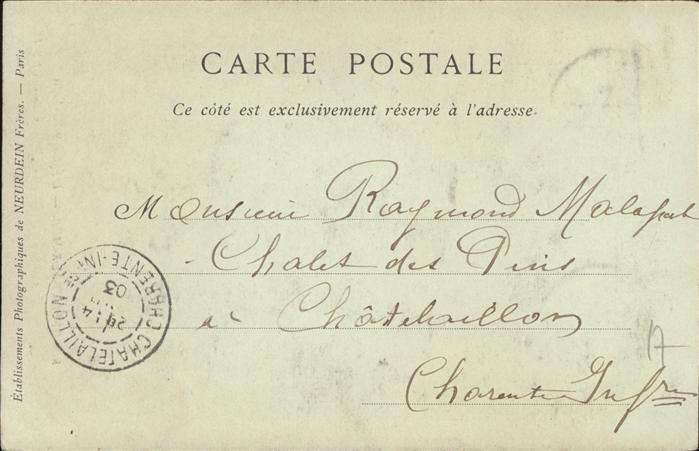 CARTE POSTALE
Ce côté est exclusivement réservé à l'adresse.
Monsieur Raymond
Chalet des Pins
à Châtelaillon
Charente Infre
Établissements Photographiques de NEURDEIN Frères. — Paris
CHATELAILLON
CHARENTE-INFRE
24
03